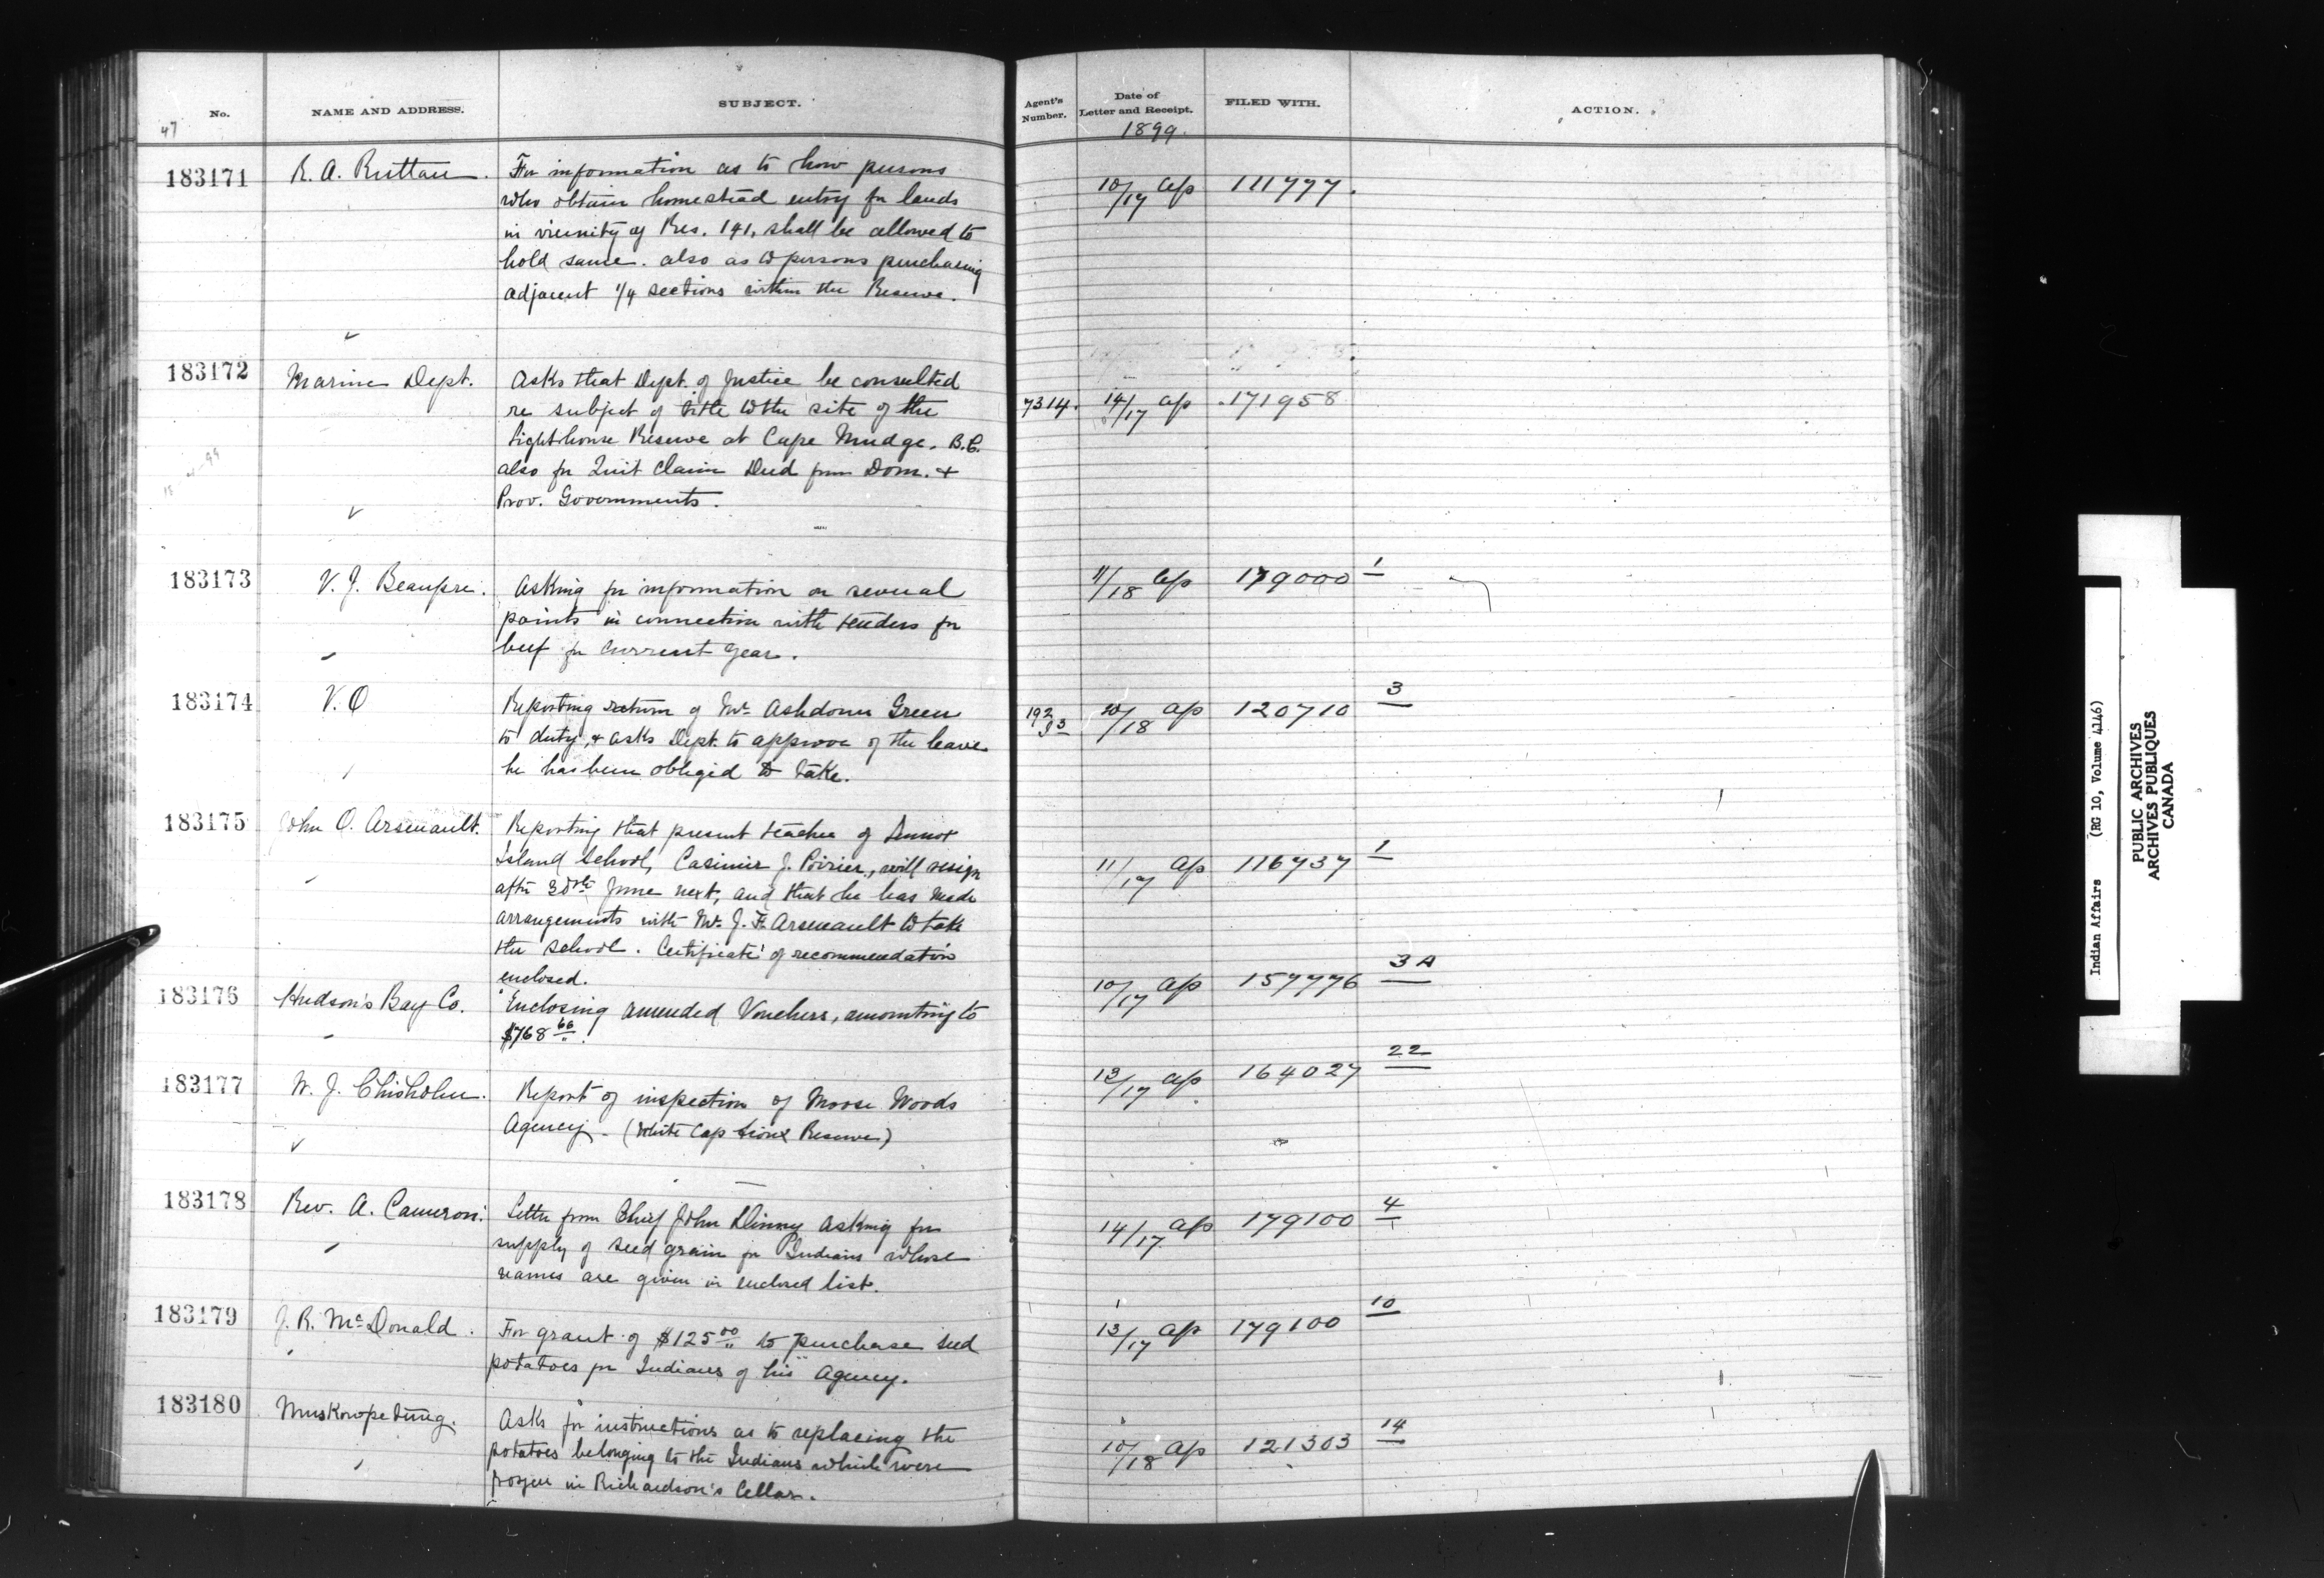 No. NAME AND ADDRESS. SUBJECT. Agent's Number. Date of Letter and Receipt. FILED WITH. ACTION.
47 1899.
183171 R. A. Ruttan. For information as to how persons 10/17 Ap 111777.
who obtain homestead entry for lands
in vicinity of Res. 141, shall be allowed to
hold same. also as to persons purchasing
adjacent 1/4 sections within the Reserve.
183172 Marine Dept. Asks that Dept. of Justice be consulted 7314. 14/17 Ap 171958
re subject of title to the site of the
Lighthouse Reserve at Cape Mudge. B.C.
also for Quit Claim Deed from Dom. +
Prov. Governments.
183173 V. J. Beaupre. Asking for information on several 11/18 Ap 179000 1
points in connection with tenders for
beef for current year.
183174 V.O Reporting return of Mr. Ashdown Green 192/33 20/18 Ap 120710 3
to duty, + asks Dept. to approve of the leave
he has been obliged to take.
183175 John O. Arsenault. Reporting that present teacher of Lennox 11/17 Ap 116737 1
Island School, Casimir J. Poirier, will resign
after 30th June next, and that he has made
arrangements with Mr. J. F. Arsenault to take
the school. Certificate of recommendation
enclosed.
183176 Hudson's Bay Co. Enclosing amended Vouchers, amounting to 10/17 Ap 157776 3A
$768 66.
183177 W. J. Chisholm. Report of inspection of Moose Woods 13/17 Ap 164027 22
Agency - (White Cap Sioux Reserve)
183178 Rev. A. Cameron. Letter from Chief John Dinny asking for 14/17 Ap 179100 4
supply of seed grain for Indians whose
names are given in enclosed list.
183179 J. R. McDonald. For grant of $125 00 to purchase seed 13/17 Ap 179100 10
potatoes for Indians of his Agency.
183180 Muskowpetung. Asks for instructions as to replacing the 10/18 Ap 121303 14
potatoes belonging to the Indians which were
frozen in Richardson's Cellar.
Indian Affairs (RG 10, Volume 4146)
PUBLIC ARCHIVES
ARCHIVES PUBLIQUES
CANADA